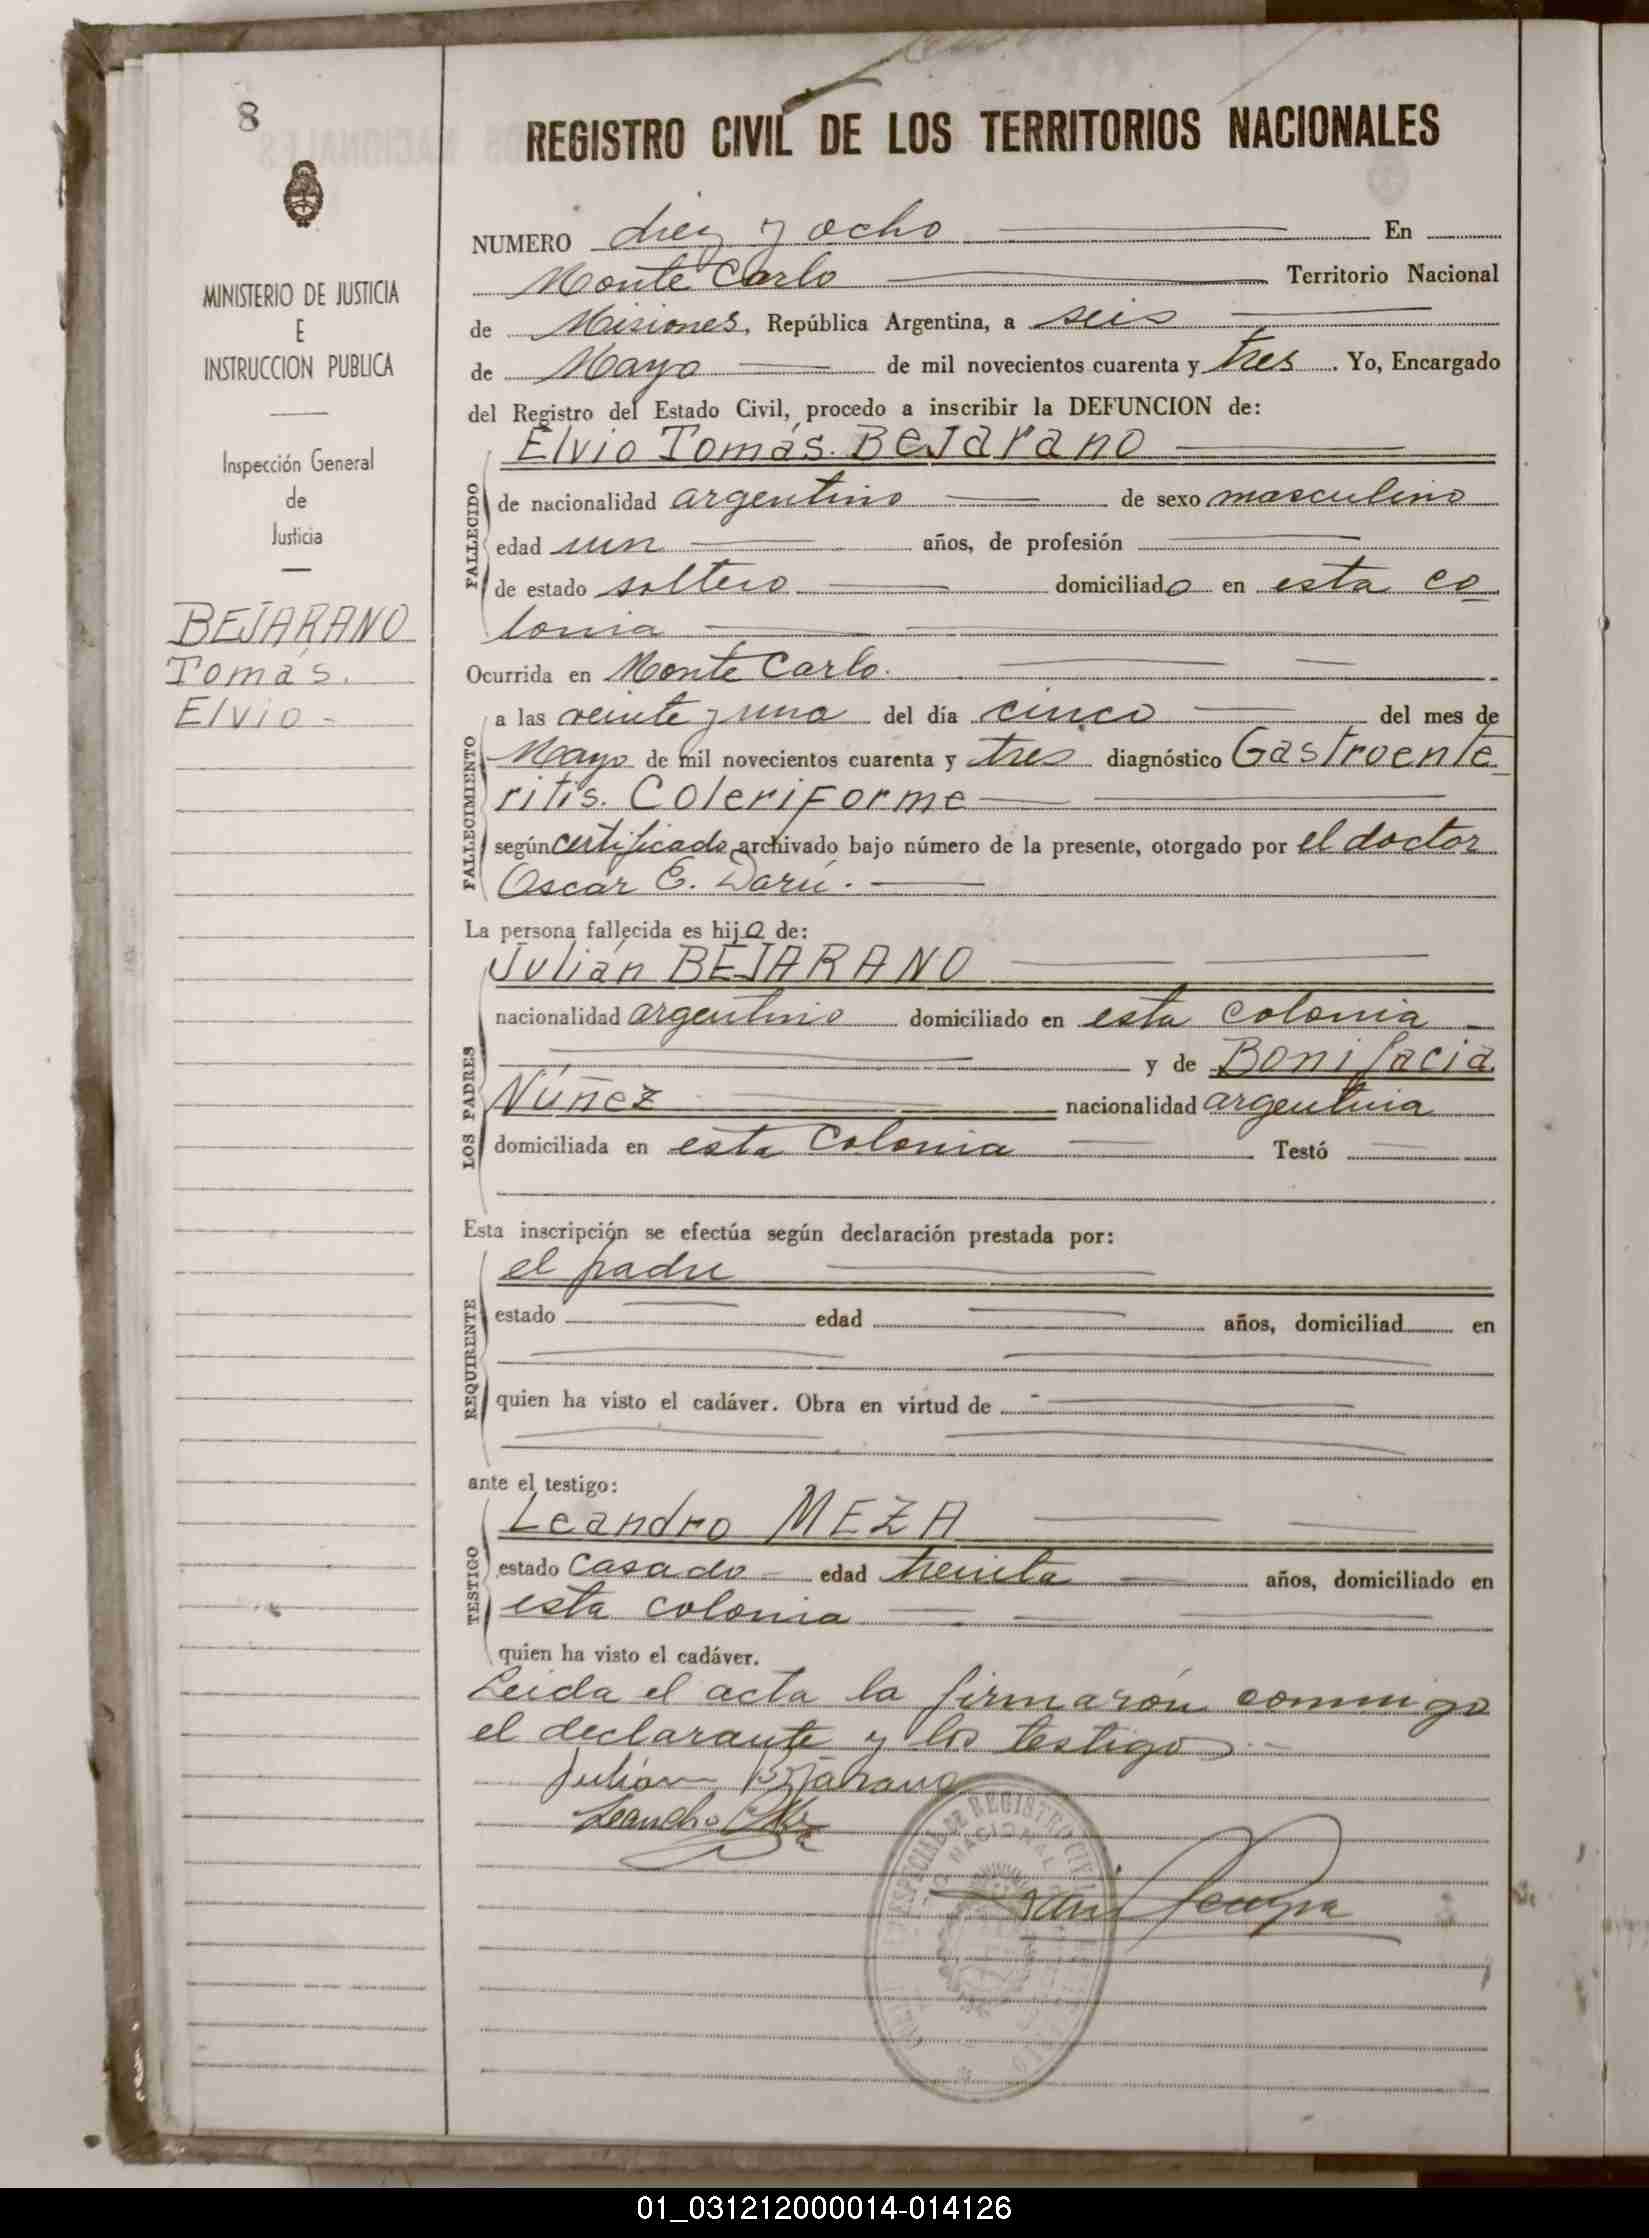 8
MINISTERIO DE JUSTICIA
E
INSTRUCCION PUBLICA
Inspección General
de
Justicia
BEJARANO
Tomás.
Elvio -
REGISTRO CIVIL DE LOS TERRITORIOS NACIONALES
NUMERO diez y ocho En
Monte Carlo Territorio Nacional
de Misiones, República Argentina, a seis
de Mayo de mil novecientos cuarenta y tres. Yo, Encargado
del Registro del Estado Civil, procedo a inscribir la DEFUNCION de:
FALLECIDO
Elvio Tomás. BeJarano
de nacionalidad argentino de sexo masculino
edad un años, de profesión
de estado soltero domiciliado en esta co
lonia
Ocurrida en Monte Carlo.
FALLECIMIENTO
a las veinte y una del día cinco del mes de
Mayo de mil novecientos cuarenta y tres diagnóstico Gastroente
ritis. Coleriforme
según certificado archivado bajo número de la presente, otorgado por el doctor
Oscar E. Darú.
La persona fallecida es hijo de:
LOS PADRES
Julián BEJARANO
nacionalidad argentino domiciliado en esta colonia
y de Bonifacia
Núñez nacionalidad argentina
domiciliada en esta colonia Testó
Esta inscripción se efectúa según declaración prestada por:
REQUIRENTE
el padre
estado edad años, domiciliad en
quien ha visto el cadáver. Obra en virtud de
ante el testigo:
TESTIGO
Leandro MEZA
estado casado edad treinta años, domiciliado en
esta colonia
quien ha visto el cadáver.
Leida el acta la firmarón conmigo
el declarante y los testigos.-
Julián Bejarano
Leandro Meza
01_031212000014-014126